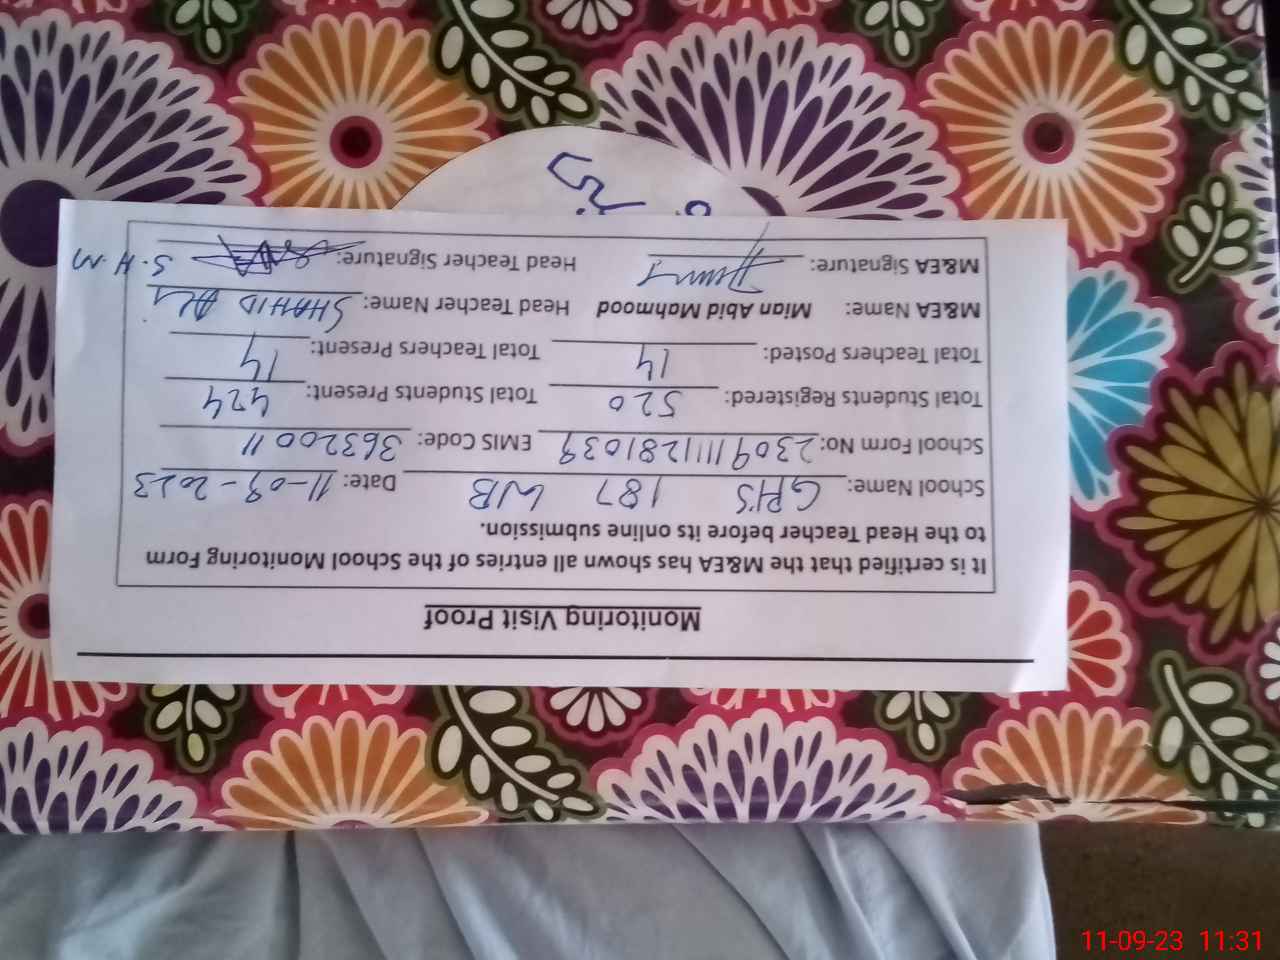 Monitoring Visit Proof
It is certified that the M&EA has shown all entries of the School Monitoring Form
to the Head Teacher before its online submission.
School Name: GPS 187 WB Date: 11-09-2023
School Form No: 23091111281039 EMIS Code: 36320011
Total Students Registered: 520 Total Students Present: 424
Total Teachers Posted: 14 Total Teachers Present: 14
M&EA Name: Mian Abid Mahmood Head Teacher Name: SHAHID Ali
M&EA Signature: Head Teacher Signature: S.H.M
11-09-23 11:31